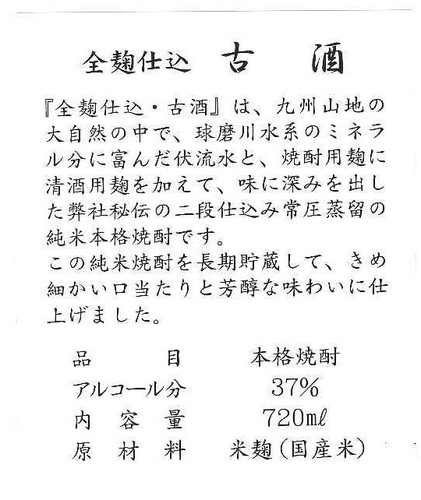 全麹仕込 古 酒
『全麹仕込・古酒』は、九州山地の
大自然の中で、球磨川水系のミネラ
ル分に富んだ伏流水と、焼酎用麹に
清酒用麹を加えて、味に深みを出し
た弊社秘伝の二段仕込み常圧蒸留の
純米本格焼酎です。
この純米焼酎を長期貯蔵して、きめ
細かい口当たりと芳醇な味わいに仕
上げました。
品 目 本格焼酎
アルコール分 37%
内 容 量 720mℓ
原 材 料 米麹(国産米)